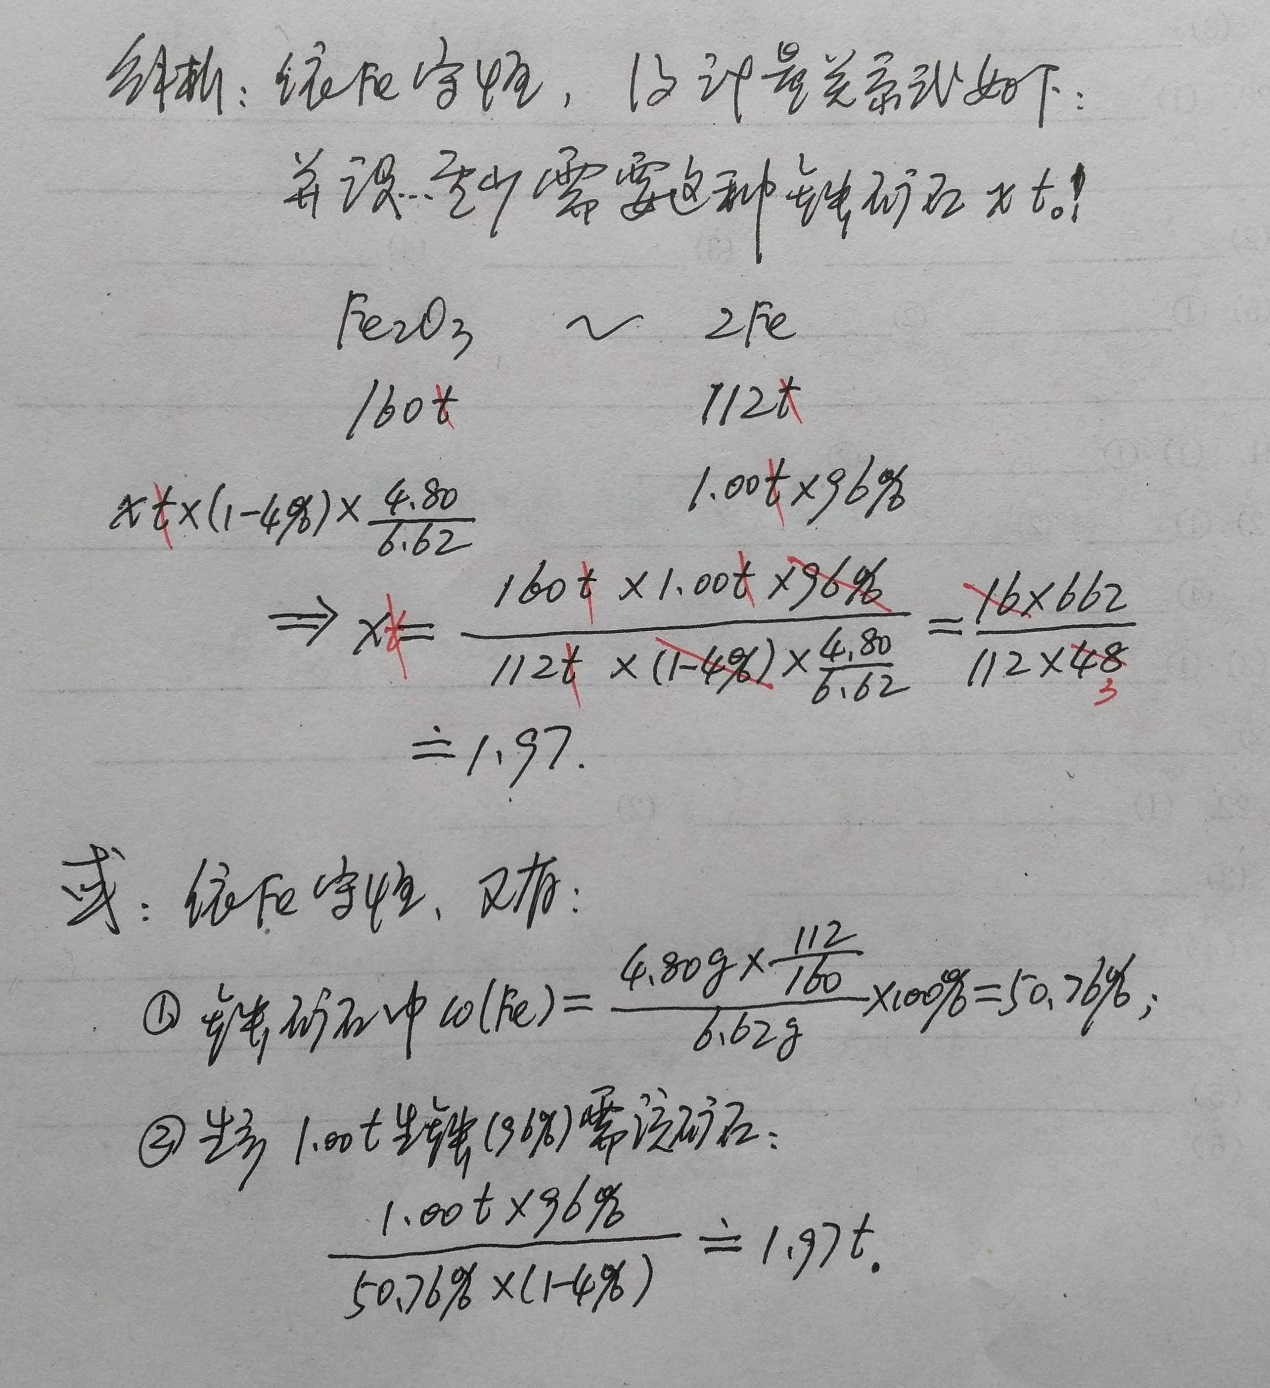 解析：依Fe守恒，设计量关系式如下：
并设…至少需要这种铁矿石 x t。！
Fe₂O₃ ~ 2Fe
160t 112t
xt×(1-4%)×4.80/6.62 1.00t×96%
⇒ xt = (160t×1.00t×96%)/(112t×(1-4%)×4.80/6.62) = (16×662)/(112×48) 3
≐1.97.
或：依Fe守恒、又有：
① 铁矿石中ω(Fe)=(4.80g×112/160)/6.62g×100%=50.76%；
② 生产1.00t生铁(96%)需该矿石：
(1.00t×96%)/(50.76%×(1-4%))≐1.97t。